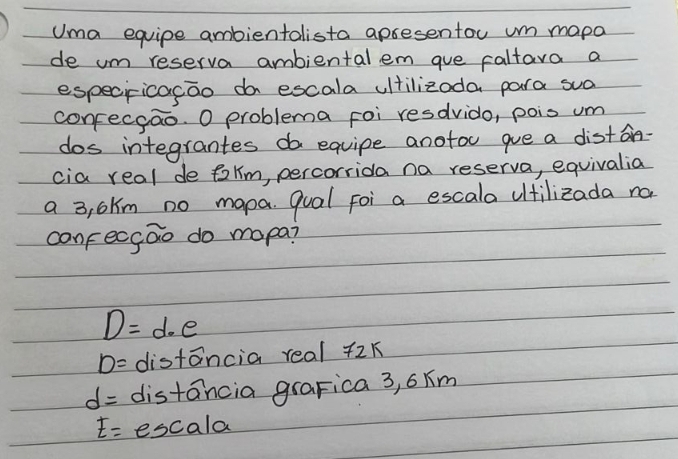 Uma equipe ambientalista apresentou um mapa
de um reserva ambiental em que faltava a
especificação da escala ultilizada para sua
confecção. O problema foi resolvido, pois um
dos integrantes da equipe anotou que a distân-
cia real de 72Km, percorrida na reserva, equivalia
a 3,6Km no mapa. Qual foi a escala ultilizada na
confecção do mapa?
D= d.e
D= distância real 72K
d= distância grafica 3,6Km
E= escala